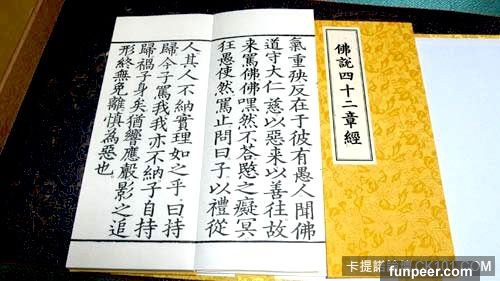 佛說四十二章經
氣重殃反在于彼有愚人聞佛
道守大仁慈以惡來以善往故
來罵佛佛嘿然不答愍之癡冥
狂愚使然罵止問曰子以禮從
人其人不納實理如之乎曰持
歸今子罵我我亦不納子自持
歸禍子身矣猶響應聲影之追
形終無免離慎為惡也
卡提諾論壇 CK101.COM
funpeer.com